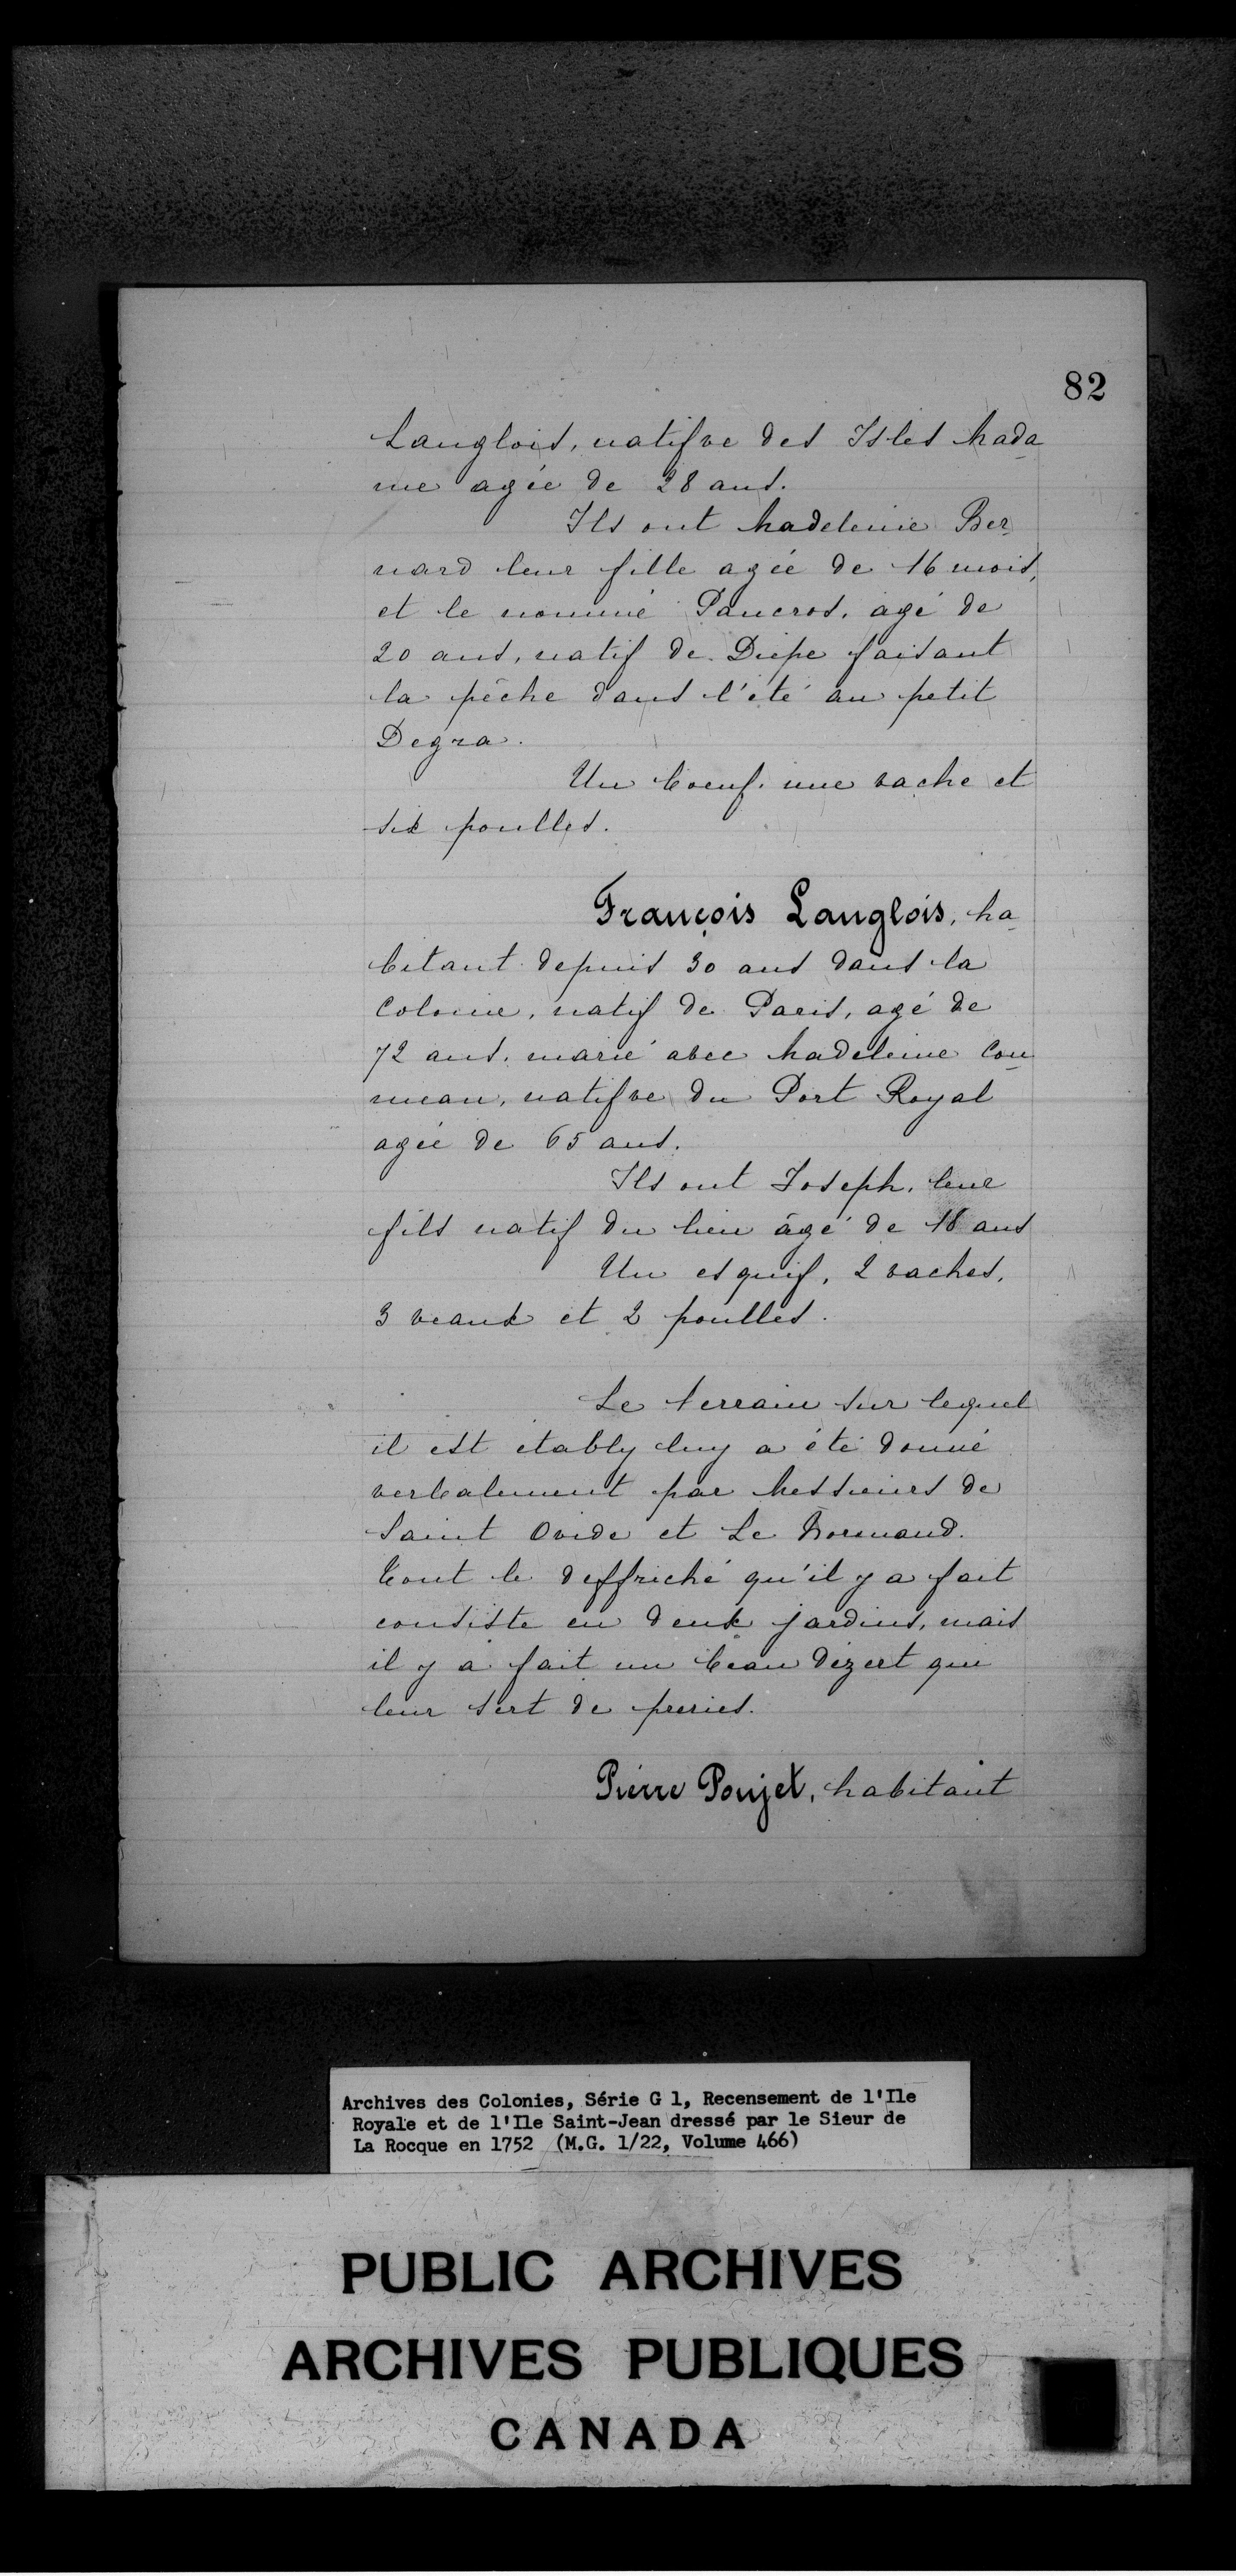 82
Langlois, natifve des Isles Mada
me agée de 28 ans.
Ils ont Madeleine Ber
nard leur fille agée de 16 mois,
et le nommé Pancros, agé de
20 ans, natif de Diepe faisant
la pêche dans l'été au petit
Degra.
Un boeuf, une vache et
six poulles.
François Langlois, ha
bitant depuis 30 ans dans la
Colonie, natif de Paris, agé de
72 ans, marié avec Madeleine Cou
meau, natifve du Port Royal
agée de 65 ans.
Ils ont Joseph, leur
fils natif du lieu âgé de 18 ans
Un esquif, 2 vaches,
3 veaux et 2 poulles.
Le terrain sur lequel
il est étably luy a été donné
verbalement par Messieurs de
Saint Ovide et Le Normand.
Tout le deffriché qu'il y a fait
consiste en deux jardins, mais
il y a fait un beau dézert qui
leur sert de preries.
Pierre Poujet, habitant
Archives des Colonies, Série G 1, Recensement de l'Ile
Royale et de l'Ile Saint-Jean dressé par le Sieur de
La Rocque en 1752 (M.G. 1/22, Volume 466)
PUBLIC ARCHIVES
ARCHIVES PUBLIQUES
CANADA